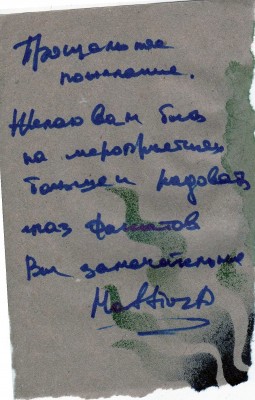 Прощальное
пожелание.
Желаю вам быть
на мероприятиях
больше и радовать
глаз фанатов
Вы замечательные